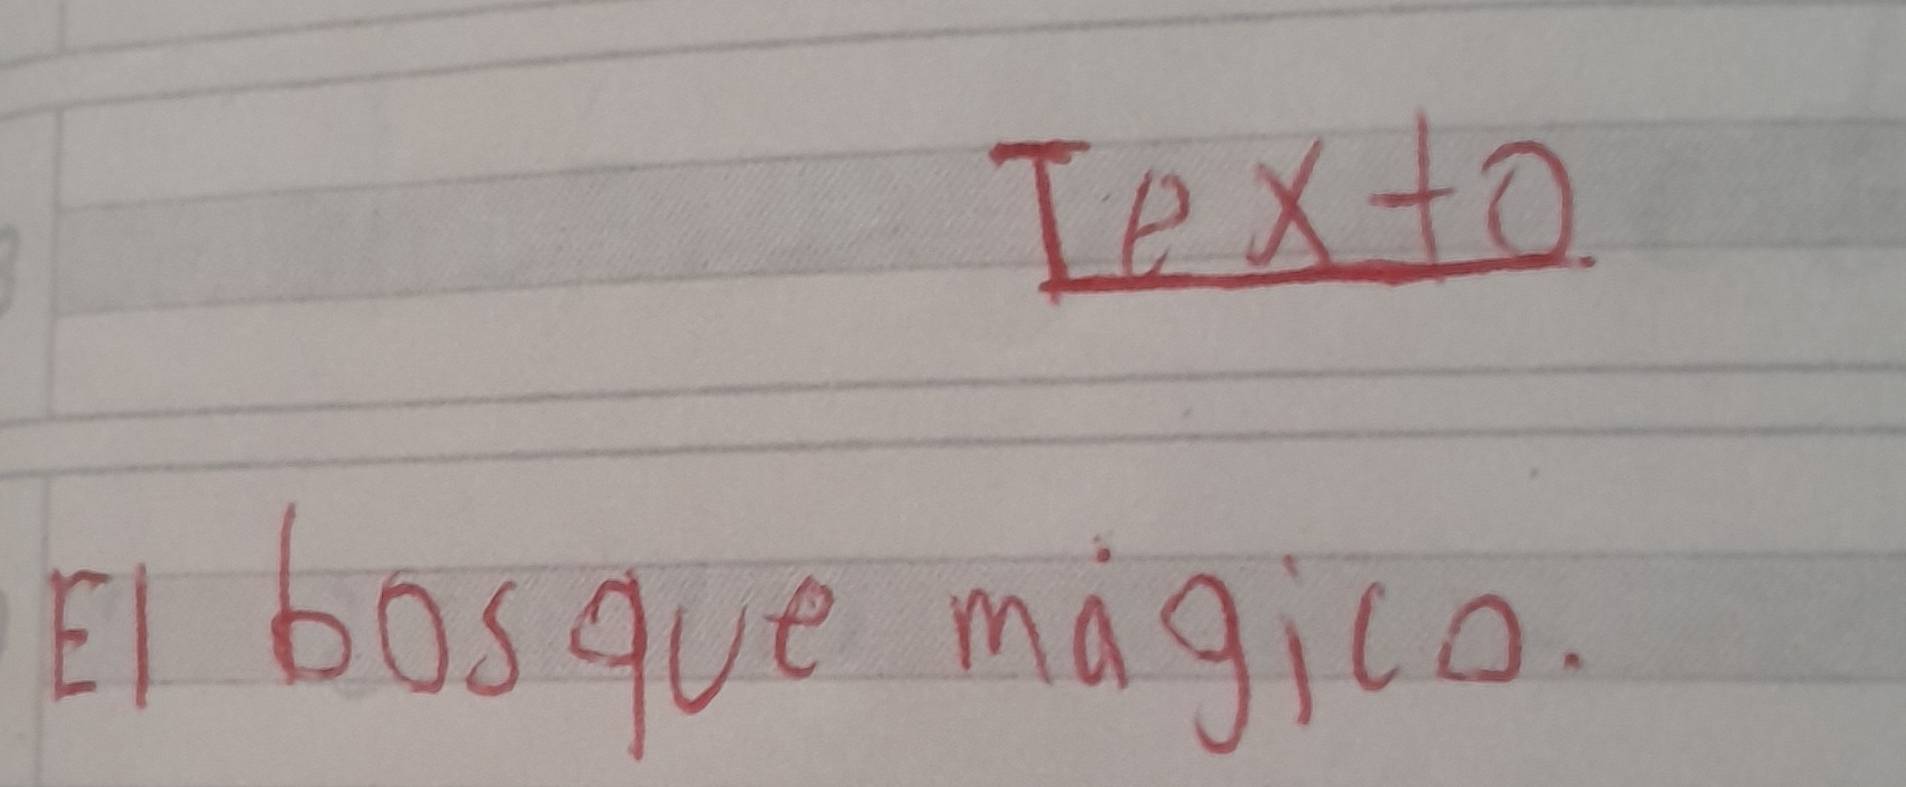 Texto
El bosque mágico.